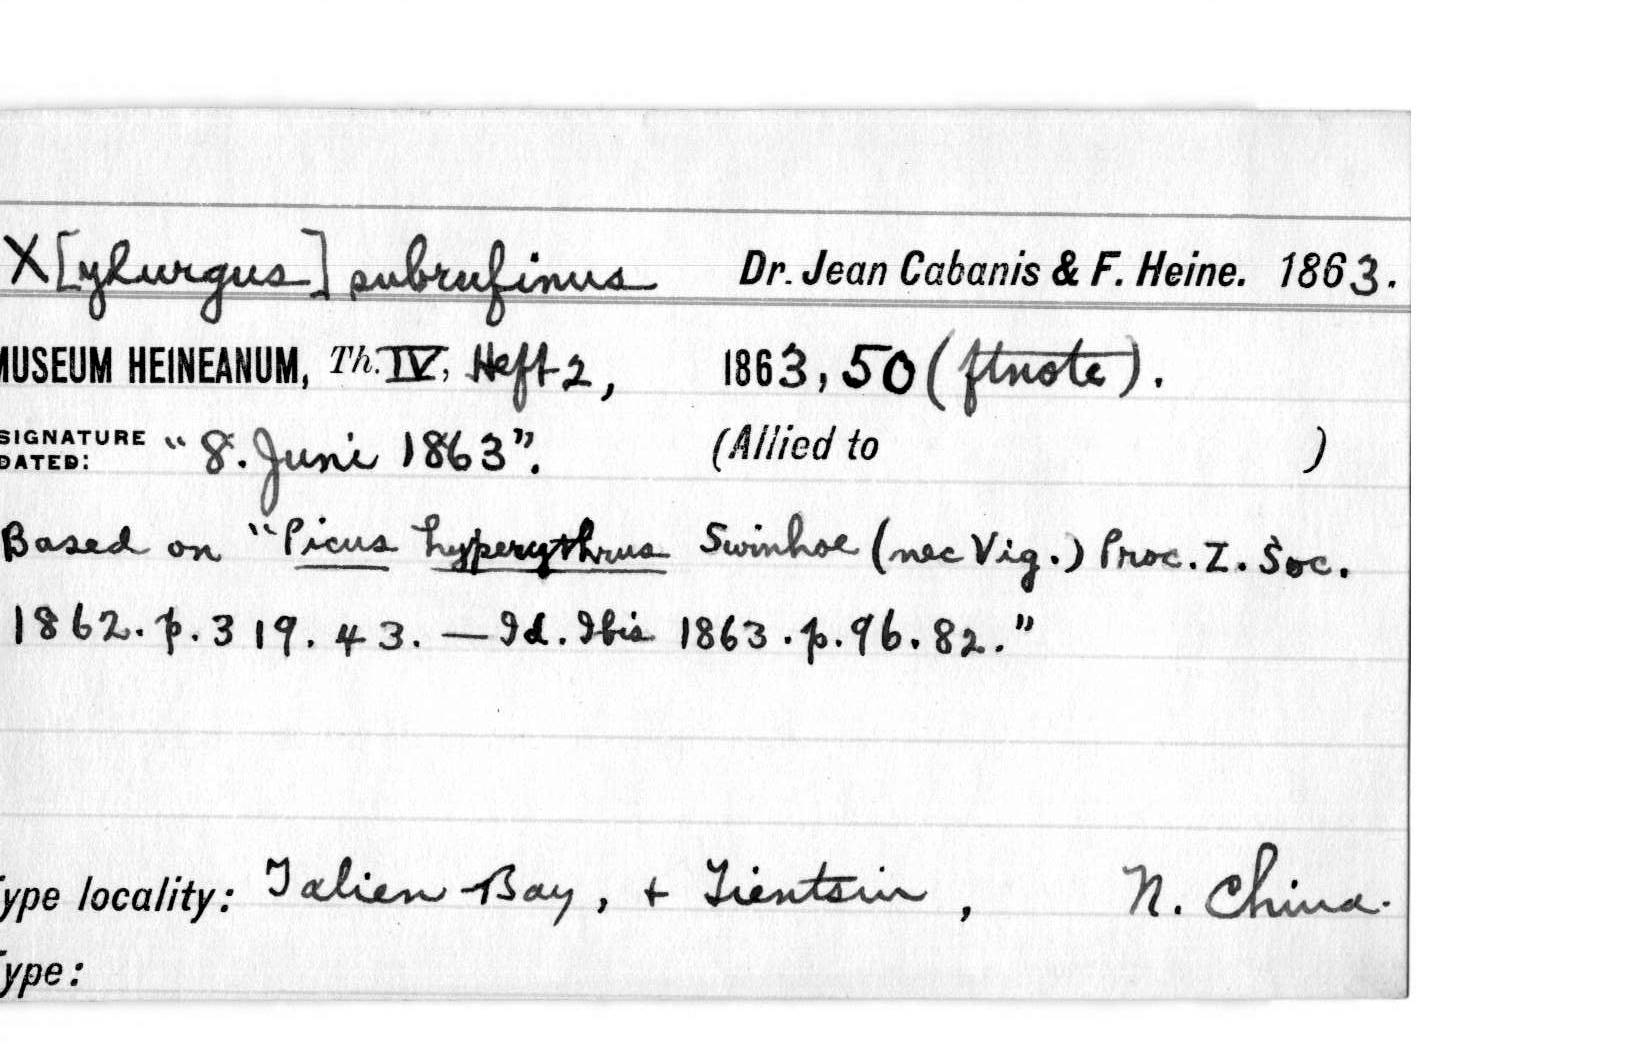 X[ylurgus] subrufinus Dr. Jean Cabanis & F. Heine. 1863.
MUSEUM HEINEANUM, Th. IV, Heft 2, 1863, 50 (ftnote).
SIGNATURE DATED: "8. Juni 1863". (Allied to )
Based on "Picus hyperythrus Swinhoe (nec Vig.) Proc. Z. Soc.
1862. p. 319. 43. — Id. Ibis 1863. p. 96. 82."
Type locality: Talien Bay, + Tientsin, N. China.
Type: